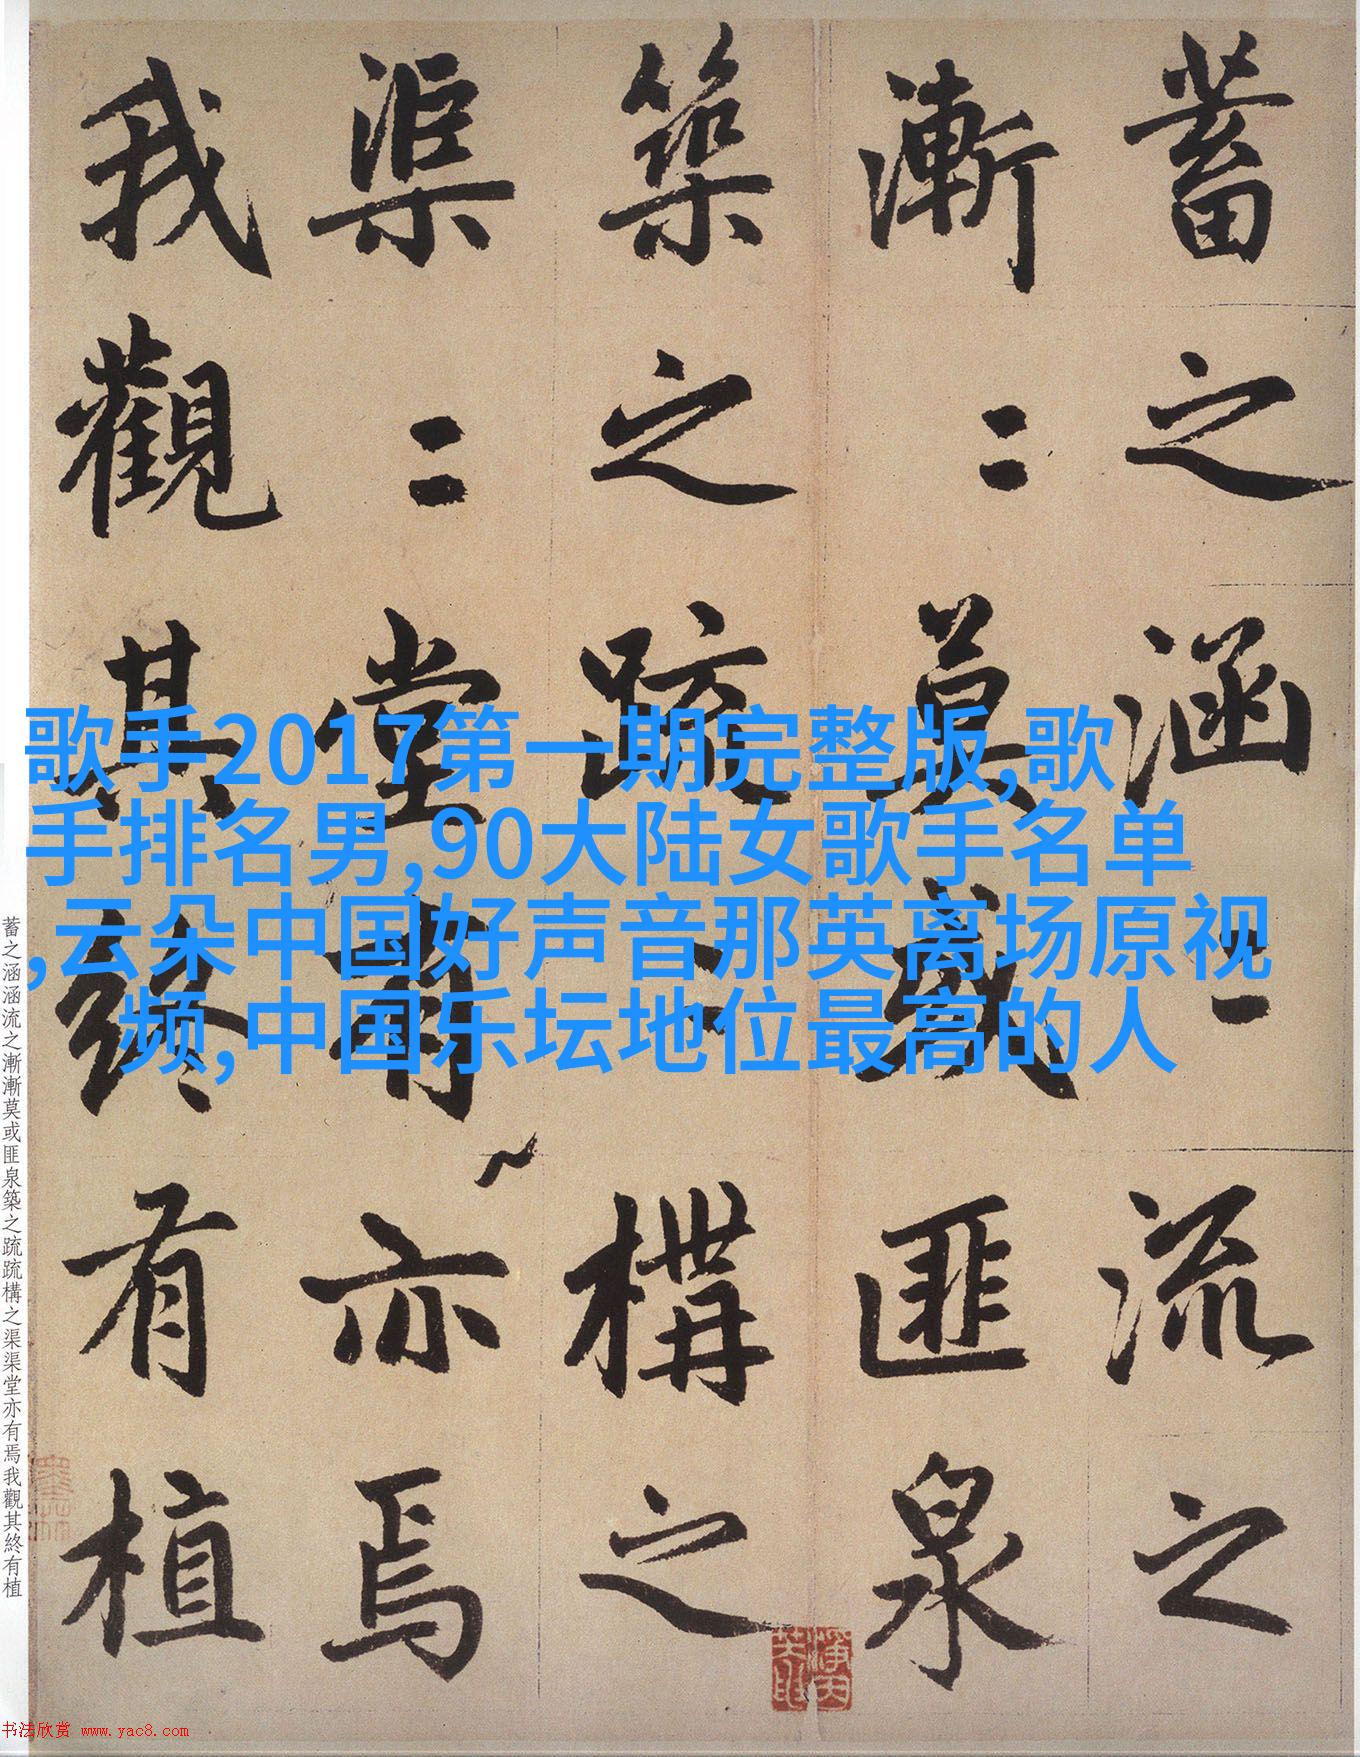 蓄之涵〻流之
漸〻莫或匪泉
築之疏〻構之
渠〻堂有亦焉
我觀其終有植
歌手2017第一期完整版,歌
手排名男,90大陆女歌手名单
,云朵中国好声音那英离场原视
频,中国乐坛地位最高的人
蓄之涵涵流之漸漸莫或匪泉築之疏疏構之渠渠堂亦有焉我觀其終有植
书法欣赏 www.yac8.com